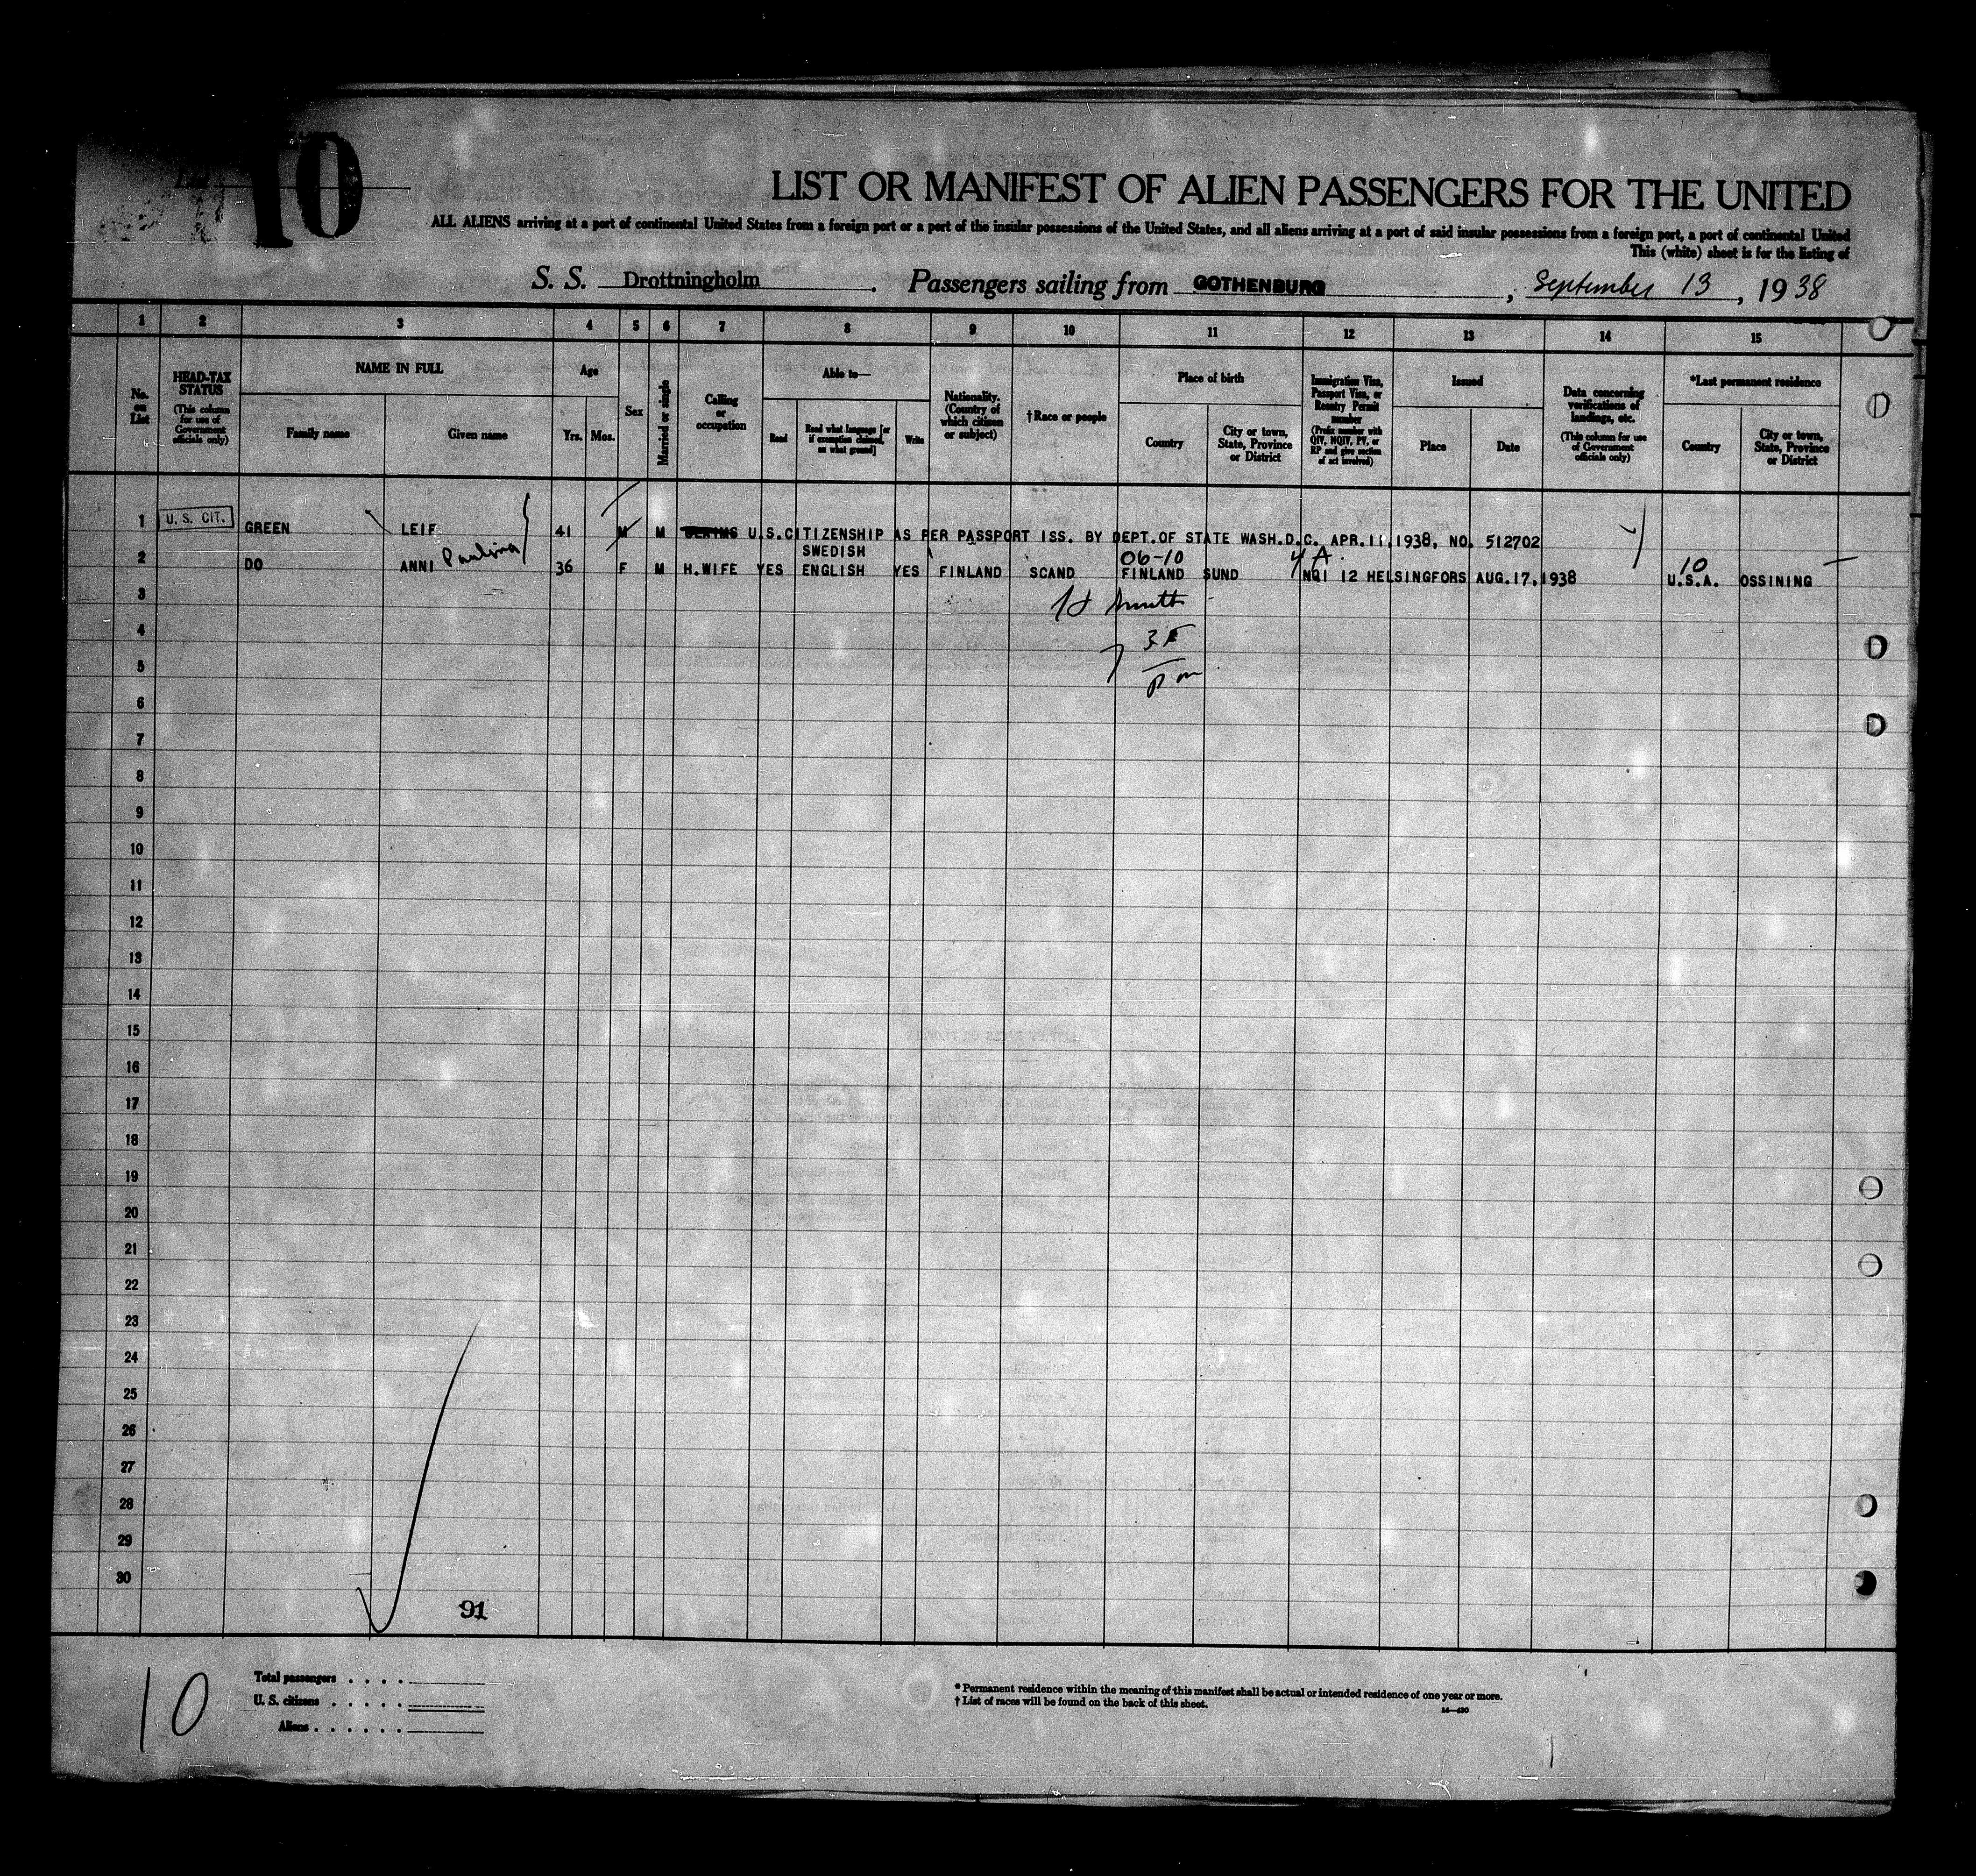 10
LIST OR MANIFEST OF ALIEN PASSENGERS FOR THE UNITED
ALL ALIENS arriving at a port of continental United States from a foreign port or a port of the insular possessions of the United States, and all aliens arriving at a port of said insular possessions from a foreign port, a port of continental United
This (white) sheet is for the listing of
S. S. Drottningholm. Passengers sailing from GOTHENBURG, September 13, 1938
1 2 3 4 5 6 7 8 9 10 11 12 13 14 15
No. on List
HEAD-TAX STATUS (This column for use of Government officials only)
NAME IN FULL
Family name Given name
Age
Yrs. Mos.
Sex
Married or single
Calling or occupation
Able to—
Read Read what language [or if exemption claimed, on what ground] Write
Nationality. (Country of which citizen or subject)
†Race or people
Place of birth
Country City or town, State, Province or District
Immigration Visa, Passport Visa, or Reentry Permit number (Prefix number with QIV, NQIV, PV, or RP and give section of act involved)
Issued
Place Date
Data concerning verifications of landings, etc. (This column for use of Government officials only)
*Last permanent residence
Country City or town, State, Province or District
1 U. S. CIT. GREEN LEIF 41 M M U.S.CITIZENSHIP AS PER PASSPORT ISS. BY DEPT.OF STATE WASH.D.C. APR.11,1938, NO. 512702
SWEDISH 06-10 4 A. 10
2 DO ANNI Paulina 36 F M H.WIFE YES ENGLISH YES FINLAND SCAND FINLAND SUND NQI 12 HELSINGFORS AUG.17,1938 U.S.A. OSSINING
3
4
5
6
7
8
9
10
11
12
13
14
15
16
17
18
19
20
21
22
23
24
25
26
27
28
29
30
91
10
Total passengers . . . .
U. S. citizens . . . . .
Aliens . . . . . .
* Permanent residence within the meaning of this manifest shall be actual or intended residence of one year or more.
† List of races will be found on the back of this sheet.